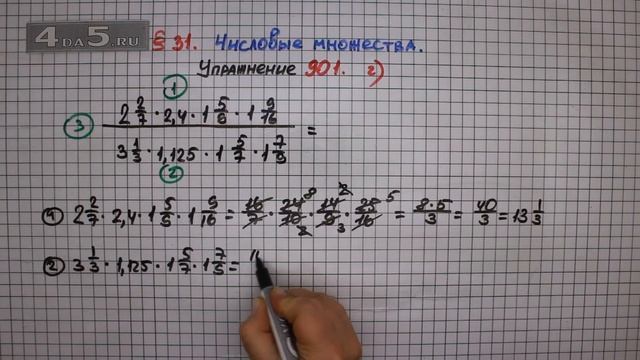 4DA5.RU
§ 31. Числовые множества.
Упражнение 901. г)
1
3 (2 2/7 · 2,4 · 1 5/9 · 1 9/16) / (3 1/3 · 1,125 · 1 5/7 · 1 7/9) =
2
1 2 2/7 · 2,4 · 1 5/9 · 1 9/16 = 16/7 · 24/10 · 14/9 · 25/16 = 8·5/3 = 40/3 = 13 1/3
8 2 5
2 3
2 3 1/3 · 1,125 · 1 5/7 · 1 7/9 =